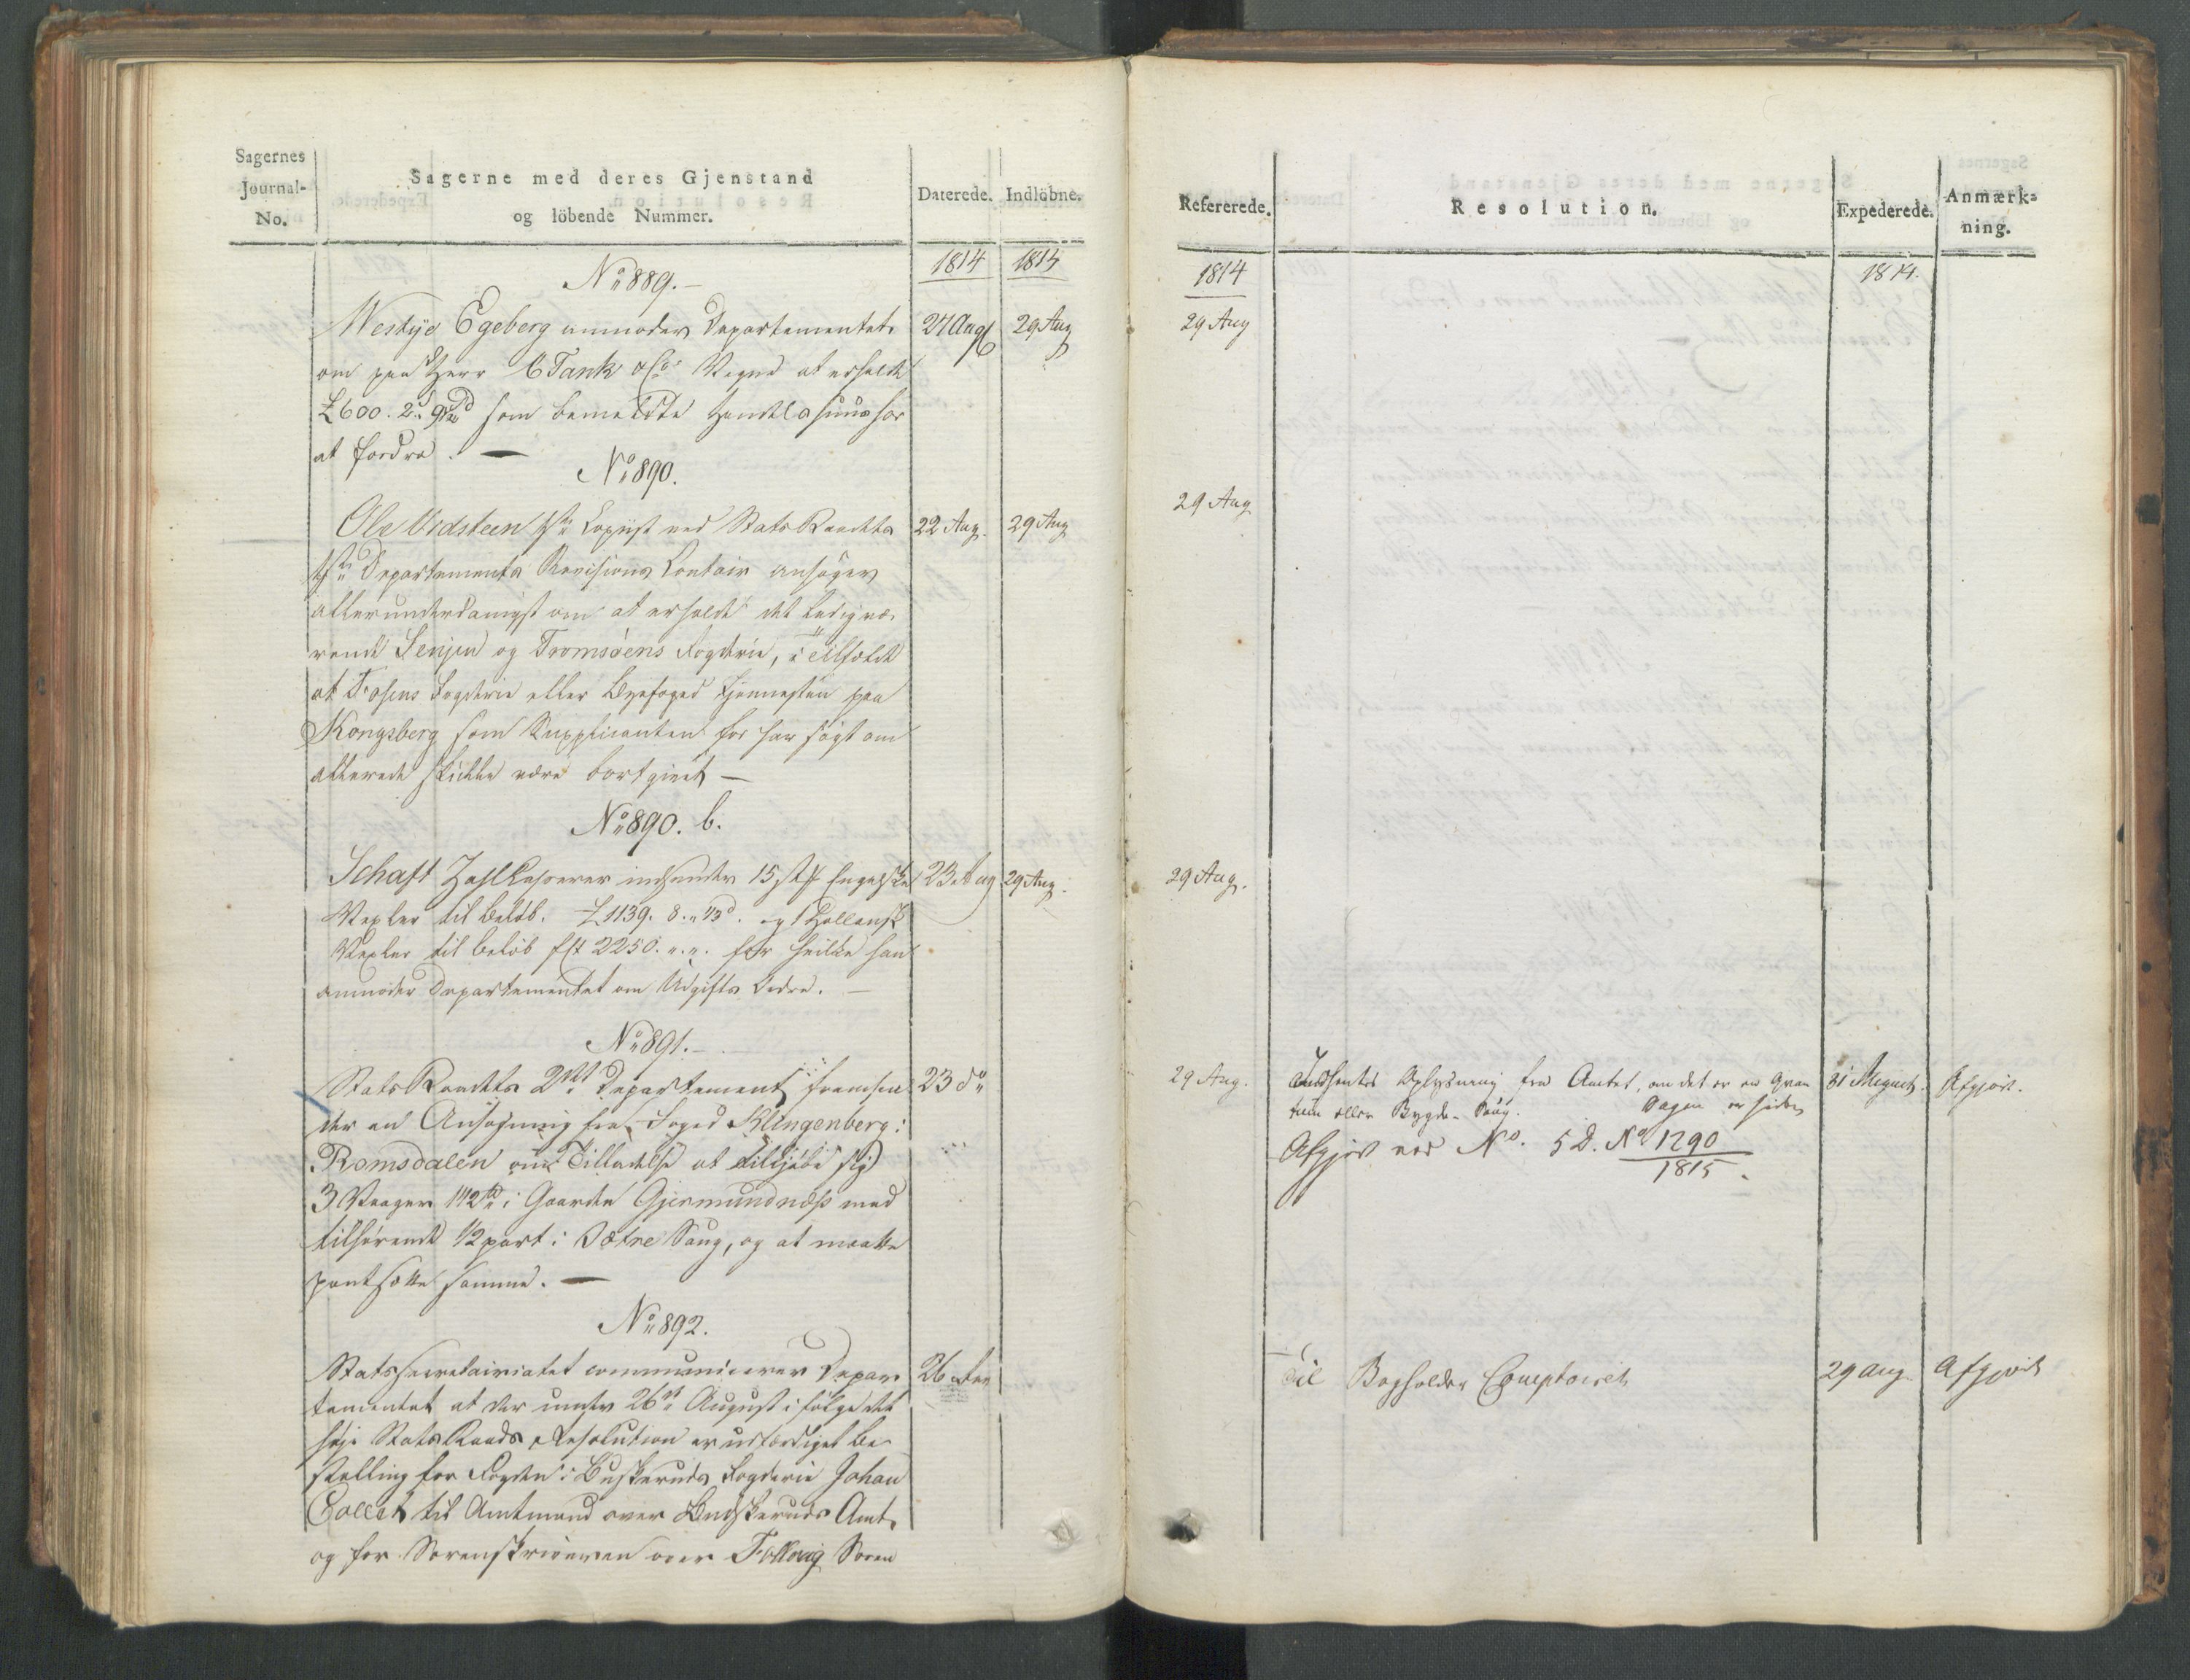 Sagernes
Journal-
No.
Sagerne med deres Gjenstand
og löbende Nummer.
Daterede.
Indlöbne.
1814
1814
No 889.-
Westye Egeberg anmoder Departementet
27 Aug
29 Aug
om paa Herr C Tank & Co Vegne at erholde
£600. 2 s. som bemeldte Handelshuus har
at fordre. —
No 890.
Ole Vidsteen Copiist ved Stats Raadets
22 Aug.
29 Aug
Departements Revisions Contoir ansøger
allerunderdanigst om at erholde det ledigvæ-
rende Senjen og Tromsøens Fogderie, i Tilfælde
at Fosens Fogderie eller Byefoged Tjenesten paa
Kongsberg som Supplicanten før har søgt om
allerede skulde være bortgivet —
No 890. b.
Schaft Zahlkasserer indsender 15 st Engelske
23 Aug
29 Aug.
Vexler til Beløb. £1139. 8. og 1 Hollansk
Vexler til beløb 2250. „. „. for hvilke han
anmoder Departementet om Udgifts Ordre. —
No 891.-
Stats Raadets 2det Departement fremsen-
23 do
der en Ansøgning fra Foged Klingenberg i
Romsdalen om Tilladelse at tilkjøbe sig
3 Vaager i Gaarden Gjermundnæs med
tilhørende 1/2 part i Sætre Saug, og at maatte
pantsætte samme. —
No 892.
Statssecretairiatet communicerer Depar-
26 den
tementet at der under 26de August i følge det
høje Stats Raads Resolution er udfærdiget Be-
stalling for Fogden i Buskeruds Fogderie Johan
Collett til Amtmand over Budskeruds Amt,
og for Sorenskriveren over Follovig Soren
Refererede.
Resolution.
Expederede.
Anmærk-
ning.
1814
1814.
29 Aug
29 Aug
29 Aug.
29 Aug.
Indhentes Oplysning fra Amtet, om det er en Qvan
31 August.
Afgjort.
tum eller Bygde-Saug. Sagen er siden
Afgjort ved No. 5 D. No 1290
1815.
Til Bogholder Comptoiret
29 Aug.
Afgjort